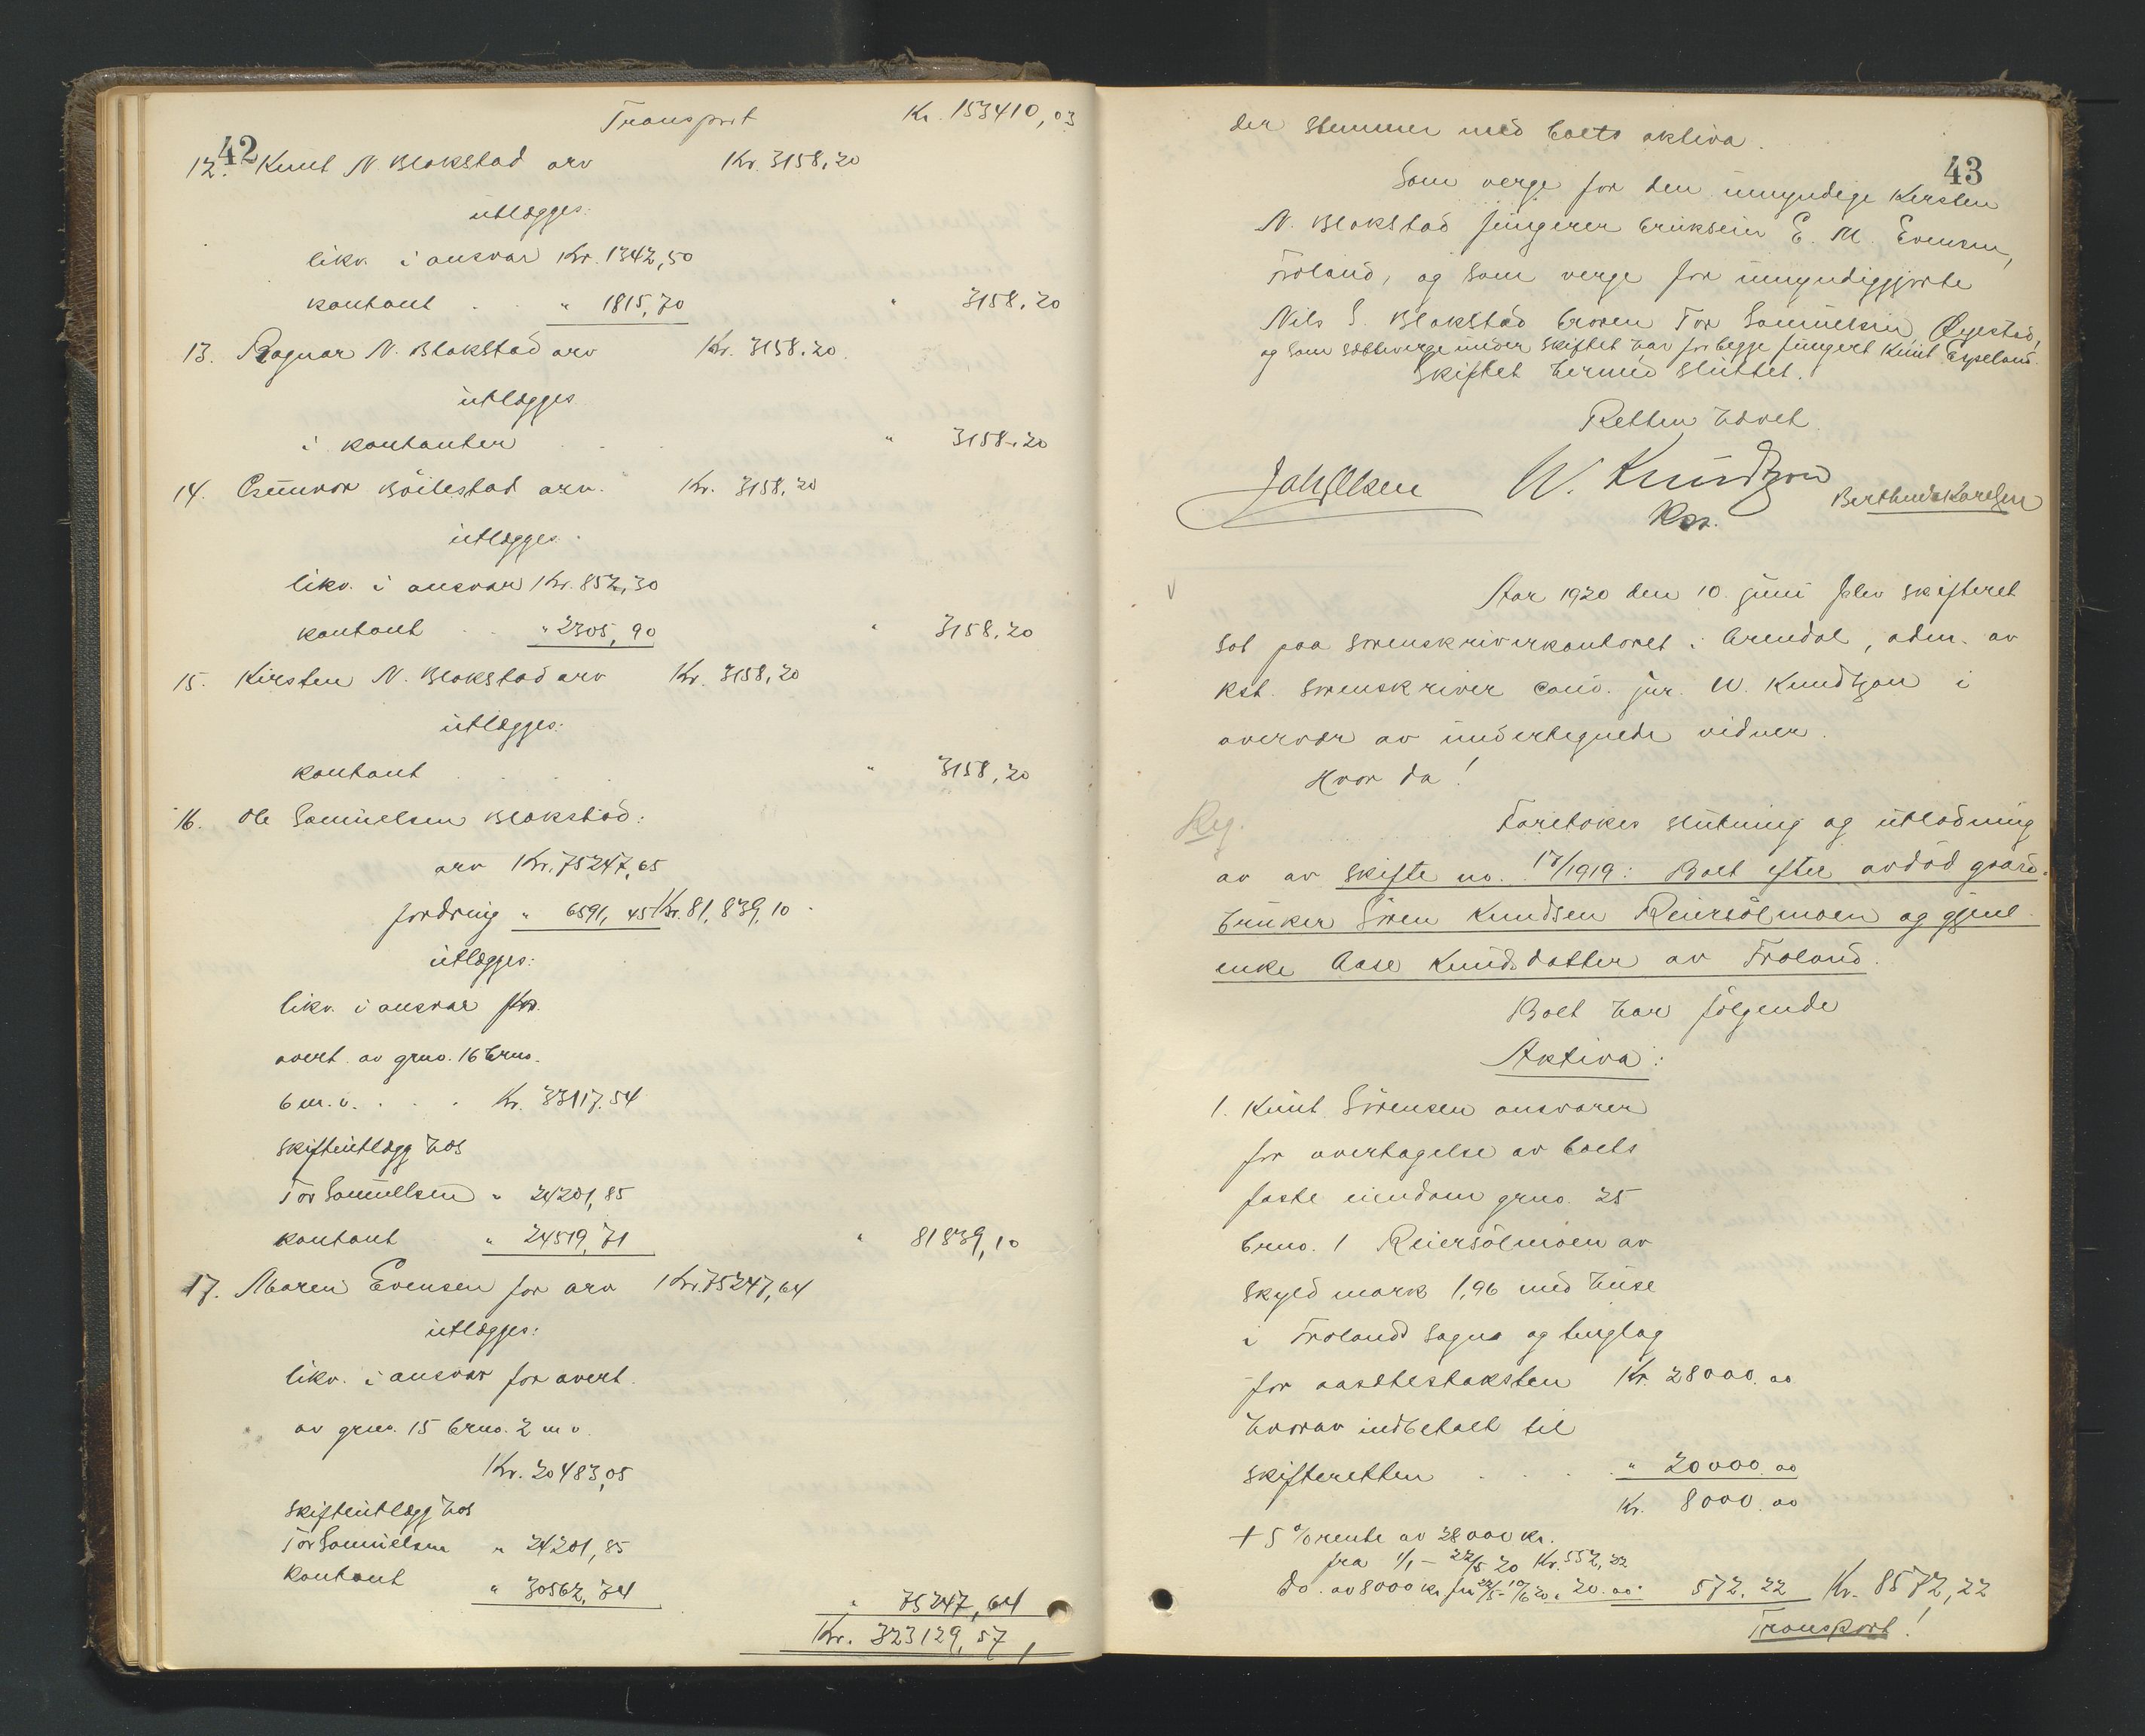 Transport Kr. 153410,03
42
12. Knut N. Blakstad arv Kr. 3158,20
utlægges:
likv. i ansvar Kr. 1342,50
kontant . . " 1815,70 " 3158,20
13. Ragnar N. Blakstad arv Kr. 3158,20
utlægges
i kontanter . . " 3158,20
14. Gunvor Böilestad arv. Kr. 3158,20
utlægges:
likv. i ansvar Kr. 852,30
kontant . . " 2305,90 " 3158,20
15. Kirsten N. Blakstad arv Kr. 3158,20
utlægges:
kontant . . . . " 3158,20
16. Ole Samuelsen Blakstad:
arv Kr. 75247,65
fordring " 6591,45 Kr. 81,839,10
utlægges:
likv. i ansvar for
overt. av grno. 16 brno.
6 m.v. . . . Kr. 33117.54
skifteutlægg hos
Tor Samuelsen " 24201,85
kontant " 24519,71 " 81839,10
17. Maren Evensen for arv Kr. 75247,64
utlægges:
likv. i ansvar for overt.
av grno. 15 brno. 2 m.v.
Kr. 20483,05
skifteutlægg hos
Tor Samuelsen " 24201,85
kontant " 30562,74 " 75247,64
Kr. 323129,57
der stemmer med boets aktiva.
43
Som verge for den umyndige Kirsten
N. Blakstad fungerer bruksein E. M. Evensen,
Froland, og som verge for umyndiggjorte
Nils S. Blakstad broren Tor Samuelsen, Øyestad,
og som setteverge under skiftet har for begge fungert Knut Espeland.
Skiftet hermed sluttet.
Retten hævet
W. Knudtzon
Kst.
Berthinds Karlsen
Aar 1920 den 10. juni blev skifteret
sat paa sorenskriverkontoret i Arendal, adm. av
kst. sorenskriver cand. jur. W. Knudtzon i
overvær av undertegnede vidner.
Hvor da!
Reg. Foretokes slutning og utlodning
av av skifte no. 17/1919: Boet efter avdöd gaard-
bruker Sören Knudsen Reiersölmoen og gjenl.
enke Aase Knudsdatter av Froland.
Boet har følgende
Aktiva:
1. Knut Sörensen ansvarer
for overtagelse av boets
faste eiendom grno. 25
brno. 1 Reiersölmoen av
skyld mark 1,96 med huse
i Frolands sogn og tinglag
for aasætestaksten Kr. 28000.00
hvorav indbetalt til
skifteretten . . . " 20000.00
Kr. 8000.00
+ 5 % rente av 28000 kr.
fra 1/1 - 22/5 20 Kr. 552,22
do. av 8000 kr. fra 22/5 - 10/6 20 " 20.00 572.22 Kr. 8572,22
Transport!